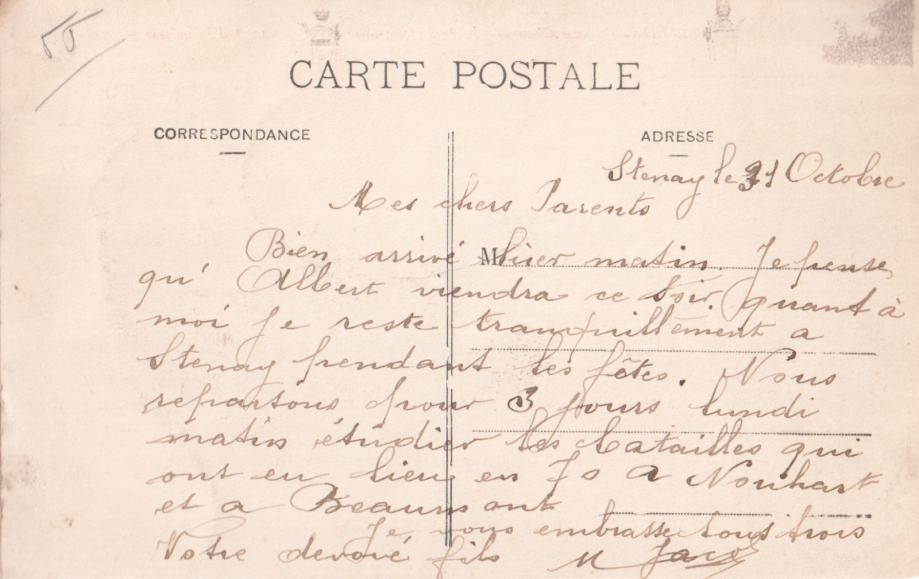 CARTE POSTALE
CORRESPONDANCE
ADRESSE
Stenay le 31 Octobre
Mes chers Parents
M
Bien arrivé hier matin Je pense
qu' Albert viendra ce soir, quant à
moi je reste tranquillement a
Stenay pendant les fêtes. Nous
repartons pour 3 jours lundi
matin étudier les batailles qui
ont eu lieu en 70 a Nouhart
et a Beaumont
Je vous embrasse tous trois
Votre devoué fils M